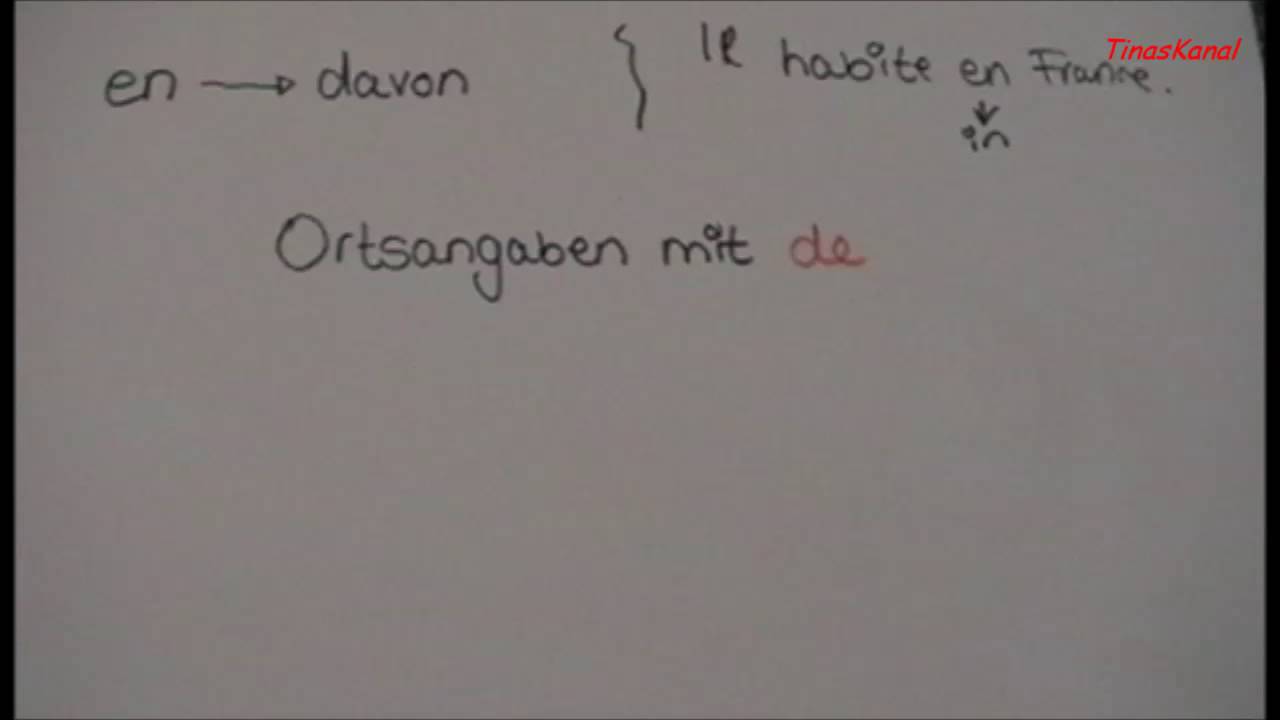 en → davon
Il habite en France.
↓
in
Ortsangaben mit de
TinasKanal